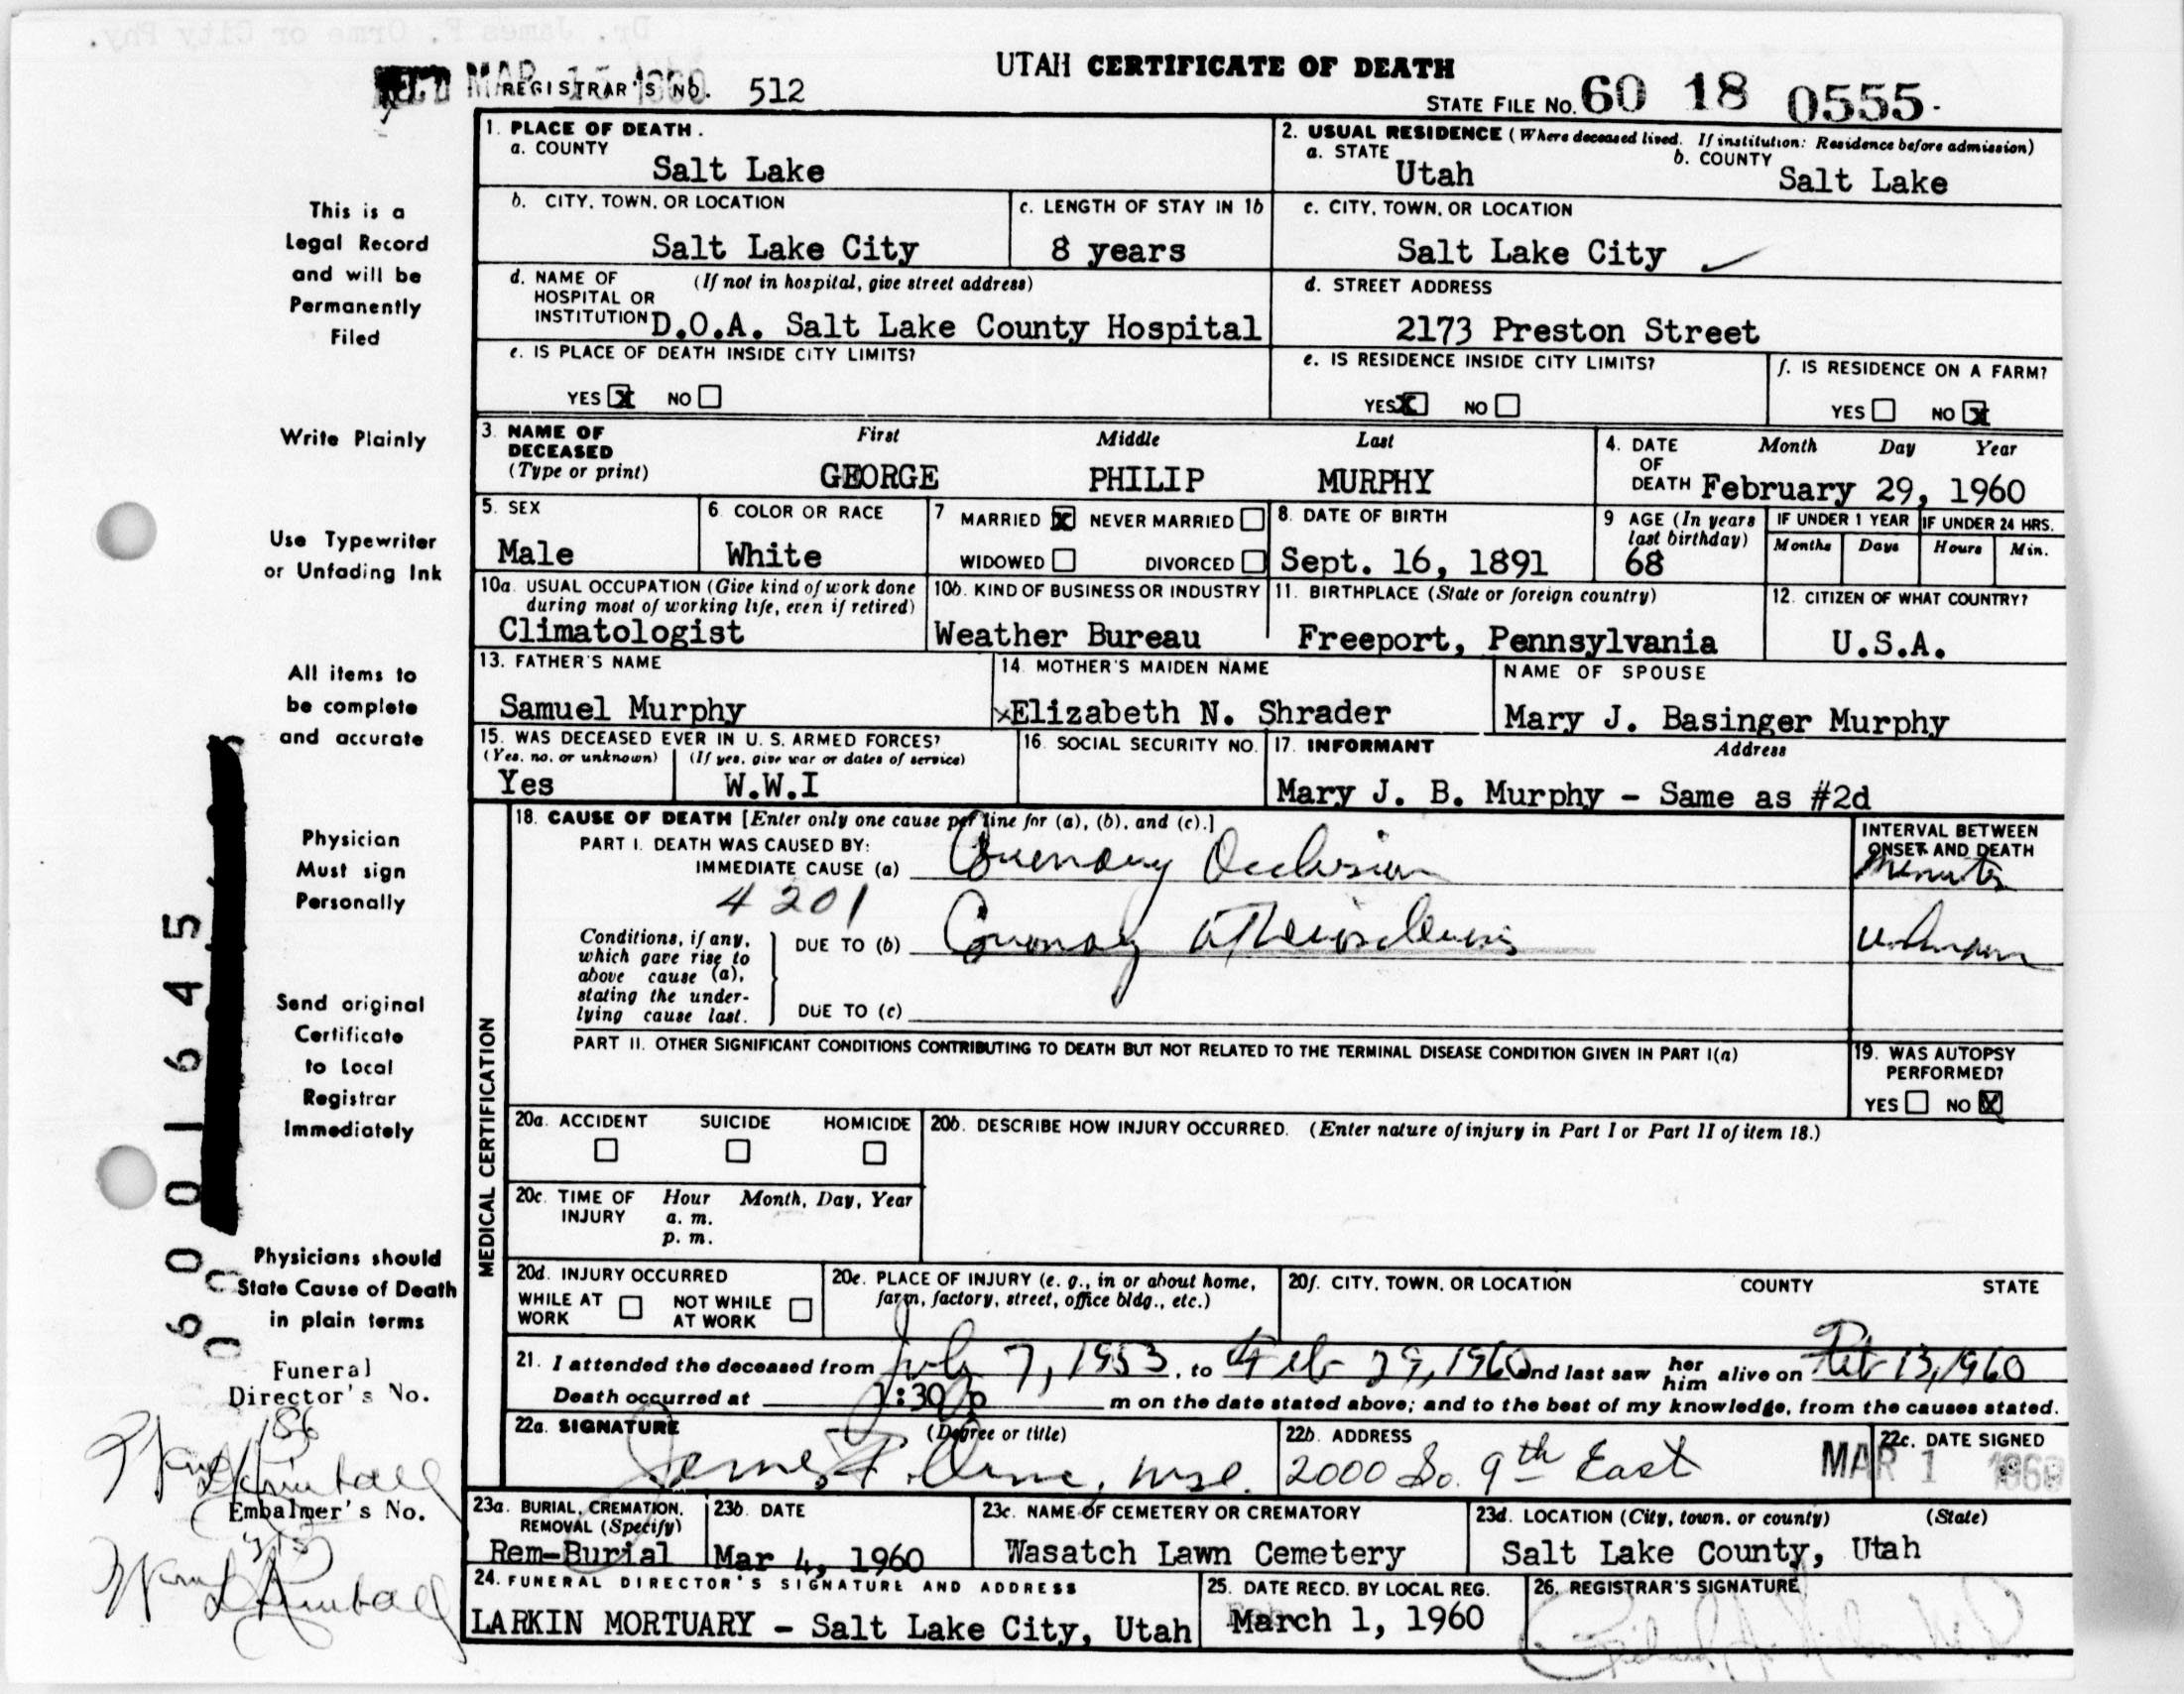 UTAH CERTIFICATE OF DEATH
REC'D MAR 15 1960 REGISTRAR'S NO. 512
STATE FILE NO. 60 18 0555
1. PLACE OF DEATH.
a. COUNTY
Salt Lake
2. USUAL RESIDENCE (Where deceased lived. If institution: Residence before admission)
a. STATE Utah b. COUNTY Salt Lake
b. CITY, TOWN, OR LOCATION
Salt Lake City
c. LENGTH OF STAY IN 1b
8 years
c. CITY, TOWN, OR LOCATION
Salt Lake City
d. NAME OF HOSPITAL OR INSTITUTION (If not in hospital, give street address)
D.O.A. Salt Lake County Hospital
d. STREET ADDRESS
2173 Preston Street
e. IS PLACE OF DEATH INSIDE CITY LIMITS?
YES X NO
e. IS RESIDENCE INSIDE CITY LIMITS?
YES X NO
f. IS RESIDENCE ON A FARM?
YES NO X
3. NAME OF DECEASED (Type or print)
First Middle Last
GEORGE PHILIP MURPHY
4. DATE OF DEATH Month Day Year
February 29, 1960
5. SEX
Male
6. COLOR OR RACE
White
7 MARRIED X NEVER MARRIED
WIDOWED DIVORCED
8. DATE OF BIRTH
Sept. 16, 1891
9 AGE (In years last birthday)
68
IF UNDER 1 YEAR
Months Days
IF UNDER 24 HRS.
Hours Min.
10a. USUAL OCCUPATION (Give kind of work done during most of working life, even if retired)
Climatologist
10b. KIND OF BUSINESS OR INDUSTRY
Weather Bureau
11. BIRTHPLACE (State or foreign country)
Freeport, Pennsylvania
12. CITIZEN OF WHAT COUNTRY?
U.S.A.
13. FATHER'S NAME
Samuel Murphy
14. MOTHER'S MAIDEN NAME
xElizabeth N. Shrader
NAME OF SPOUSE
Mary J. Basinger Murphy
15. WAS DECEASED EVER IN U. S. ARMED FORCES?
(Yes, no, or unknown) (If yes, give war or dates of service)
Yes W.W.I
16. SOCIAL SECURITY NO.
17. INFORMANT Address
Mary J. B. Murphy - Same as #2d
MEDICAL CERTIFICATION
18. CAUSE OF DEATH [Enter only one cause per line for (a), (b), and (c).]
PART I. DEATH WAS CAUSED BY:
IMMEDIATE CAUSE (a) Coronary Occlusion
INTERVAL BETWEEN ONSET AND DEATH
minutes
4201
Conditions, if any, which gave rise to above cause (a), stating the underlying cause last.
DUE TO (b) Coronary atherosclerosis
unknown
DUE TO (c)
PART II. OTHER SIGNIFICANT CONDITIONS CONTRIBUTING TO DEATH BUT NOT RELATED TO THE TERMINAL DISEASE CONDITION GIVEN IN PART I(a)
19. WAS AUTOPSY PERFORMED?
YES NO X
20a. ACCIDENT SUICIDE HOMICIDE
20b. DESCRIBE HOW INJURY OCCURRED. (Enter nature of injury in Part I or Part II of item 18.)
20c. TIME OF INJURY Hour Month, Day, Year
a. m.
p. m.
20d. INJURY OCCURRED
WHILE AT WORK NOT WHILE AT WORK
20e. PLACE OF INJURY (e. g., in or about home, farm, factory, street, office bldg., etc.)
20f. CITY, TOWN, OR LOCATION COUNTY STATE
21. I attended the deceased from July 7, 1953, to Feb 29, 1960 and last saw her him alive on Feb 13, 1960
Death occurred at 1:30 p m on the date stated above; and to the best of my knowledge, from the causes stated.
22a. SIGNATURE (Degree or title)
James F. Orme, M.D.
22b. ADDRESS
2000 So. 9th East
22c. DATE SIGNED
MAR 1 1960
23a. BURIAL, CREMATION, REMOVAL (Specify)
Rem-Burial
23b. DATE
Mar 4, 1960
23c. NAME OF CEMETERY OR CREMATORY
Wasatch Lawn Cemetery
23d. LOCATION (City, town, or county) (State)
Salt Lake County, Utah
24. FUNERAL DIRECTOR'S SIGNATURE AND ADDRESS
LARKIN MORTUARY - Salt Lake City, Utah
25. DATE RECD. BY LOCAL REG.
March 1, 1960
26. REGISTRAR'S SIGNATURE
This is a
Legal Record
and will be
Permanently
Filed
Write Plainly
Use Typewriter
or Unfading Ink
All items to
be complete
and accurate
Physician
Must sign
Personally
Send original
Certificate
to Local
Registrar
Immediately
Physicians should
State Cause of Death
in plain terms
Funeral
Director's No.
186
Kimball
Embalmer's No.
Kimball
Dr. James F. Orme or City Phy.